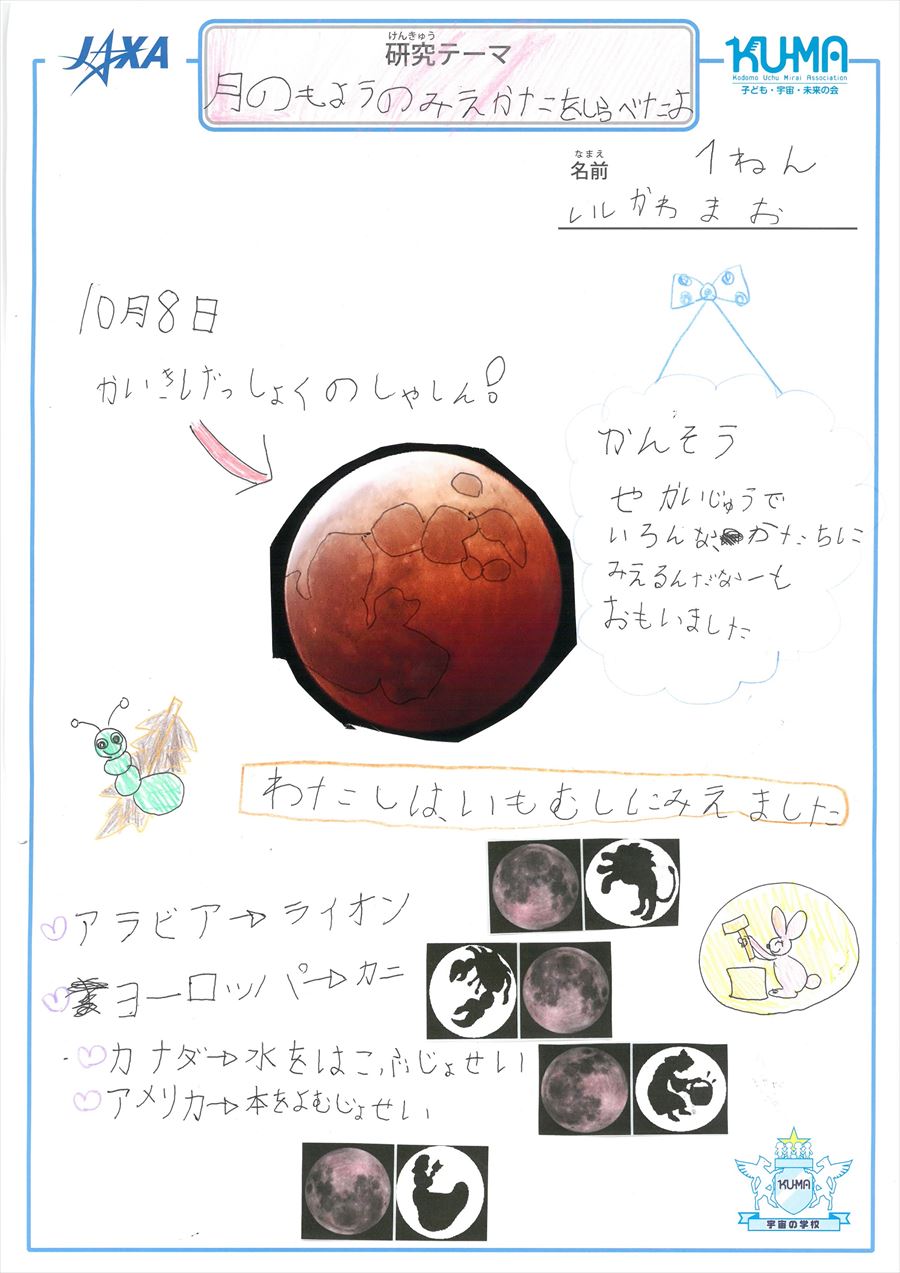 JAXA
けんきゅう
研究テーマ
月のもようのみえかたをしらべたよ
KU-MA
Kodomo Uchu Mirai Association
子ども・宇宙・未来の会
なまえ
名前
1ねん
いしかわ まお
10月8日
かいきげっしょくのしゃしん!
かんそう
せかいじゅうで
いろんなかたちに
みえるんだなーと
おもいました
わたしは、いもむしにみえました
アラビア→ライオン
ヨーロッパ→カニ
カナダ→水をはこぶじょせい
アメリカ→本をよむじょせい
KU-MA
宇宙の学校